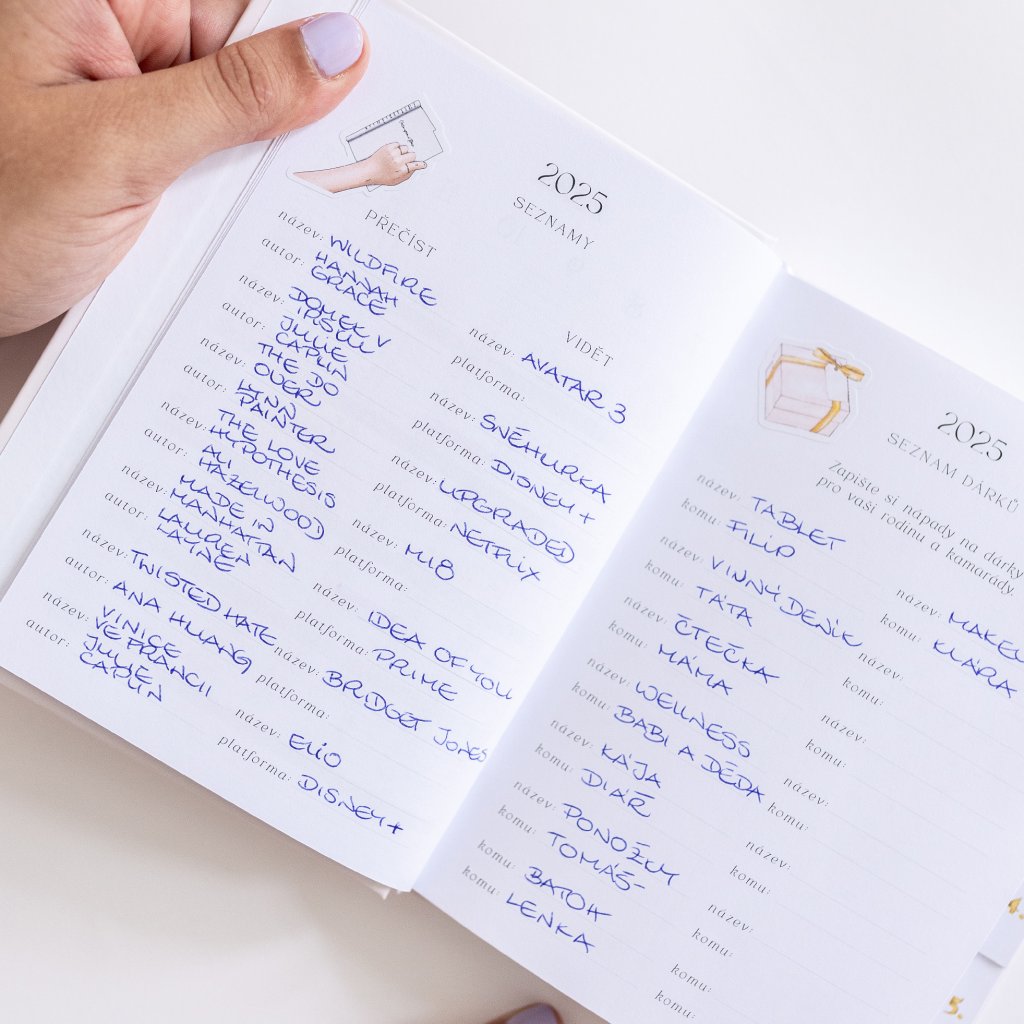 2025
SEZNAMY
PŘEČÍST
název: WILDFIRE
autor: HANNAH
GRACE
název: DOMEK V
IRSKU
autor: JULIE
CAPLIN
název: THE DO
OVER
autor: LYNN
PAINTER
název: THE LOVE
HYPOTHESIS
autor: ALI
HAZELWOOD
název: MADE IN
MANHATTAN
autor: LAUREN
LAYNE
název: TWISTED HATE
autor: ANA HUANG
název: VINICE
VE FRANCII
autor: JULIE
CAPLIN
VIDĚT
název: AVATAR 3
platforma:
název: SNĚHURKA
platforma: DISNEY+
název: UPGRADED
platforma: NETFLIX
název: M18
platforma:
název: IDEA OF YOU
platforma: PRIME
název: BRIDGET JONES
platforma:
název: ELIO
platforma: DISNEY+
2025
SEZNAM DÁRKŮ
Zapište si nápady na dárky
pro vaši rodinu a kamarády.
název: TABLET
komu: FILIP
název: VINNÝ DENÍK
komu: TÁTA
název: ČTEČKA
komu: MÁMA
název: WELLNESS
komu: BABI A DĚDA
název: KÁJA
komu: DIÁŘ
název: PONOŽKY
komu: TOMÁŠ
komu: BATOH
komu: LENKA
název:
komu: KLÁRA
název:
komu:
název:
komu:
název:
komu:
název:
komu:
název:
komu:
komu:
komu:
4.
5.